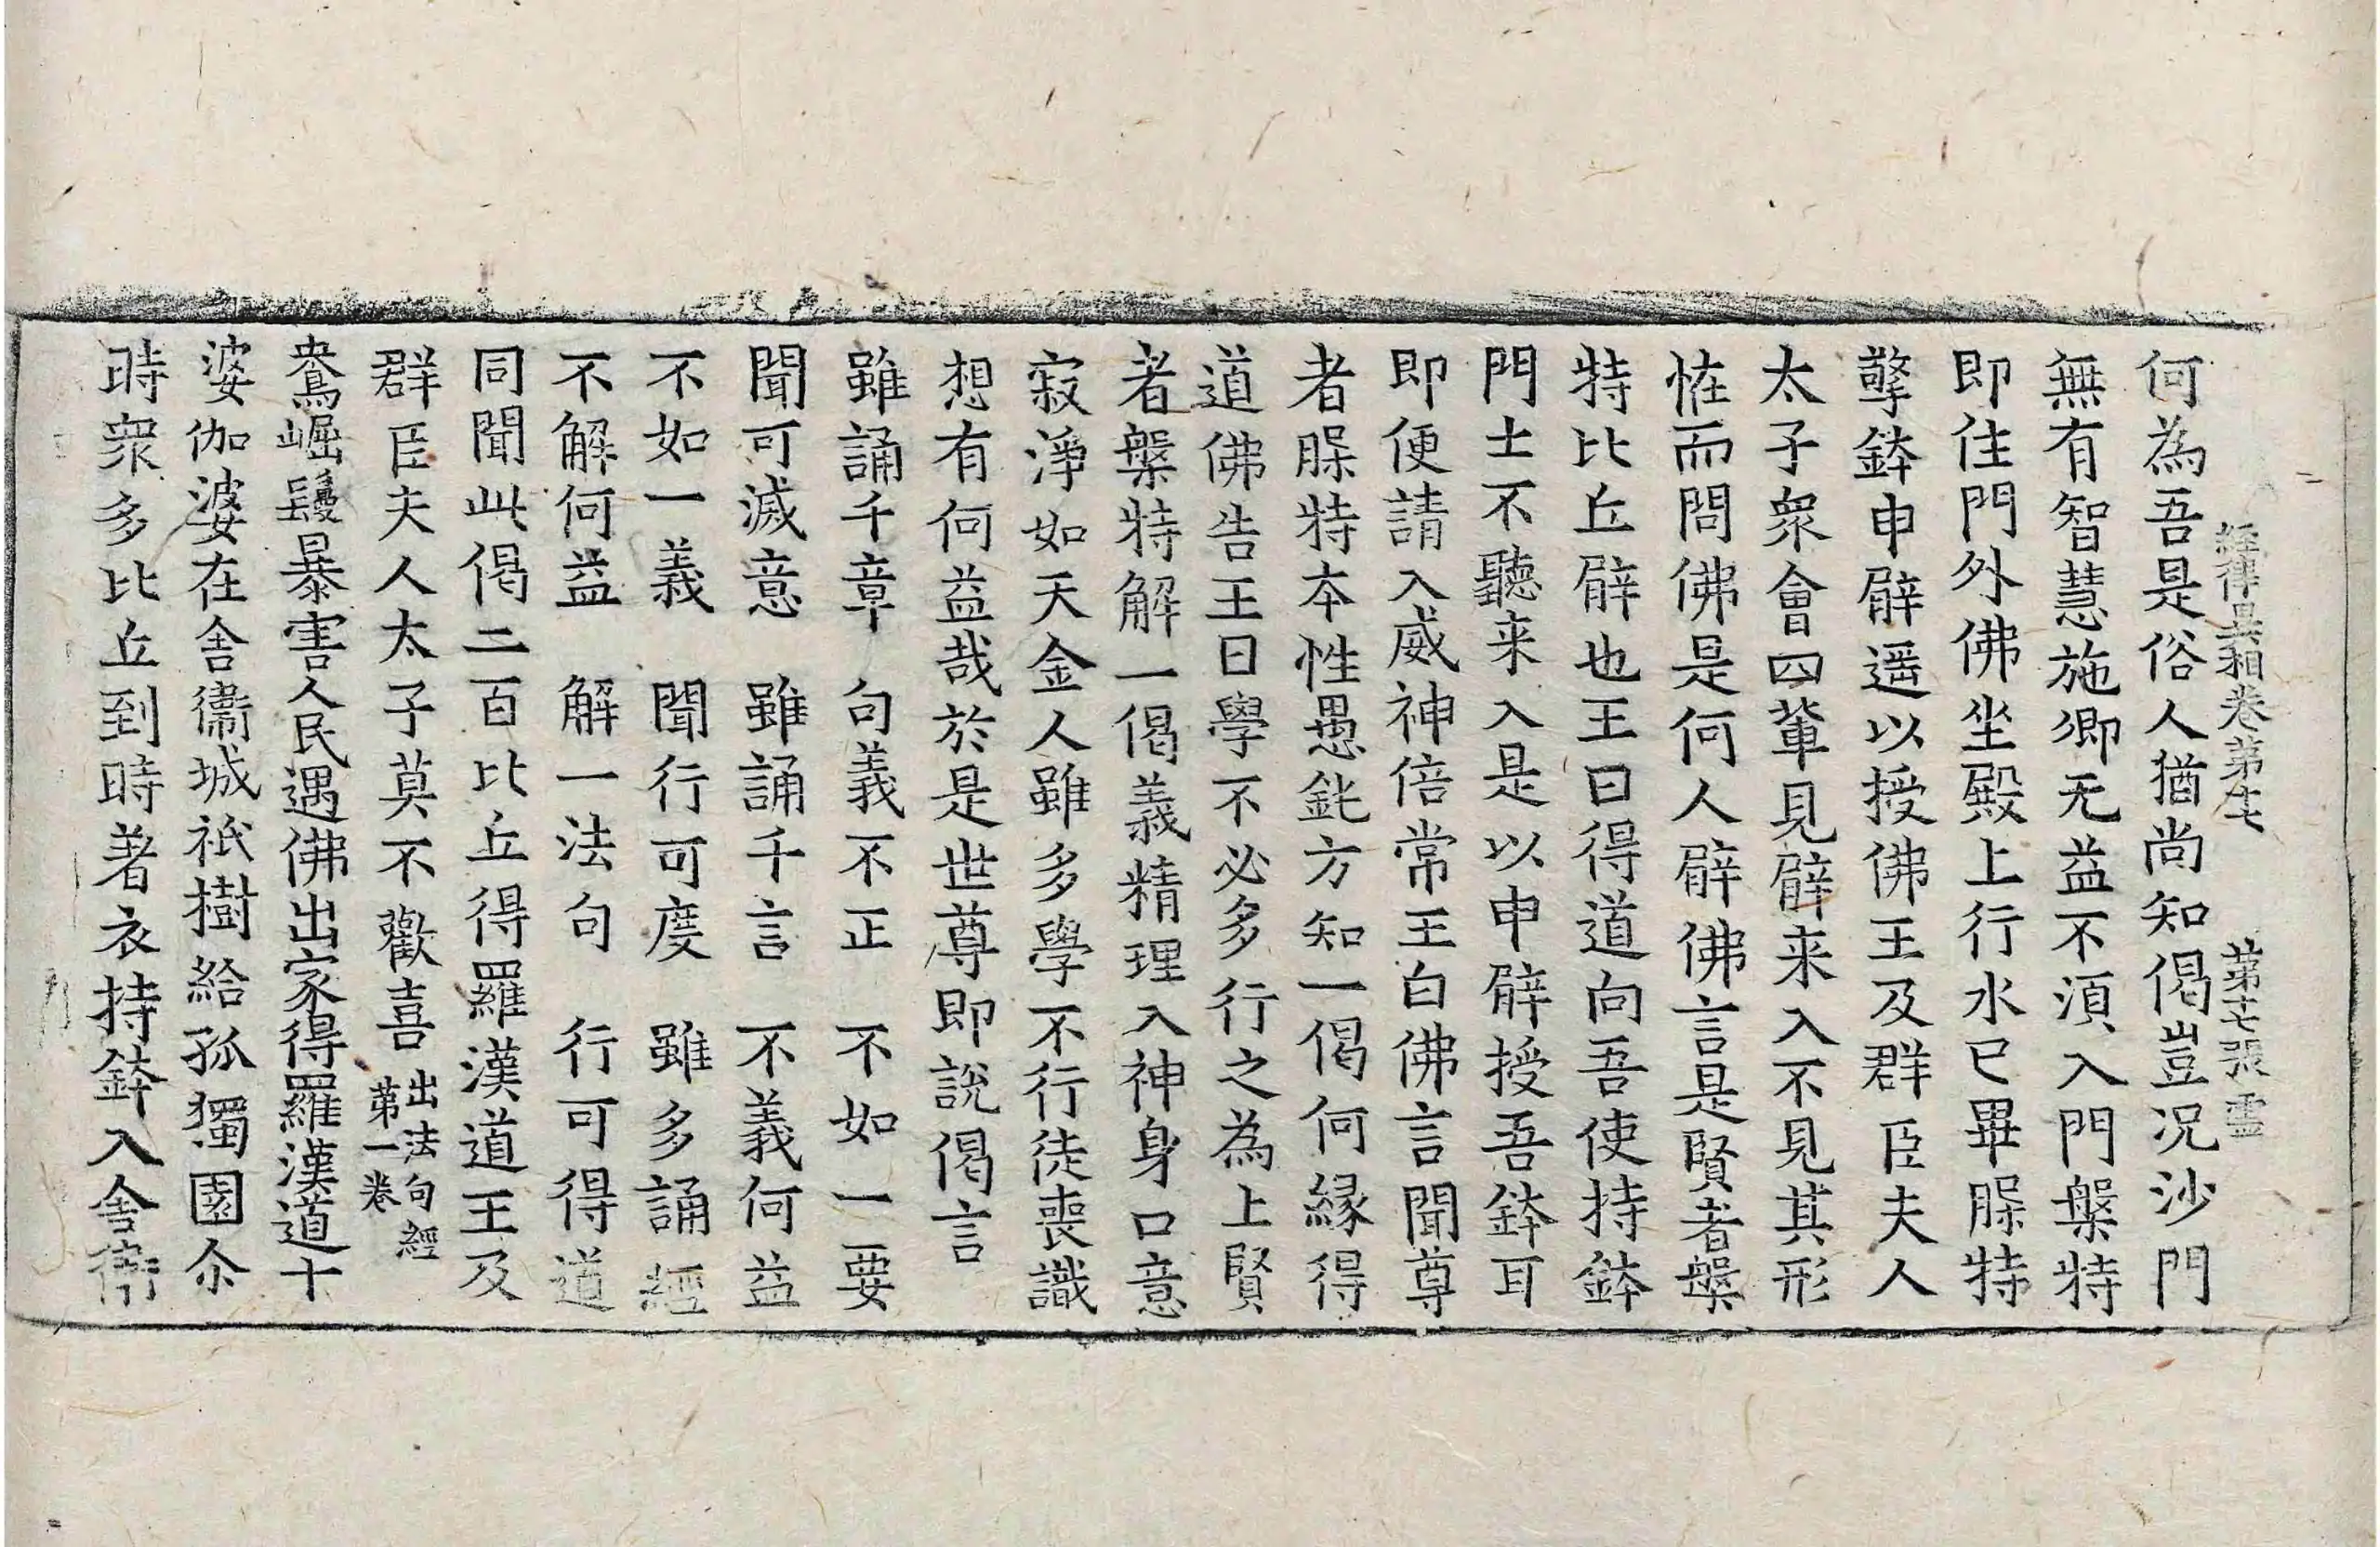 經律異相卷第十七 第十七張 靈
何為吾是俗人猶尚知偈豈況沙門
無有智慧施卿无益不湏入門槃特
即住門外佛坐殿上行水已畢䏢特
擎鉢申臂遥以授佛王及群臣夫人
太子衆會四輩見臂来入不見其形
恠而問佛是何人臂佛言是賢者槃
特比丘臂也王曰得道向吾使持鉢
門士不聽来入是以申臂授吾鉢耳
即便請入威神倍常王白佛言聞尊
者䏢特夲性愚鈍方知一偈何緣得
道佛告王曰學不必多行之為上賢
者槃特解一偈義精理入神身口意
寂淨如天金人雖多學不行徒喪識
想有何益哉於是世尊即說偈言
雖誦千章 句義不正 不如一要
聞可滅意 雖誦千言 不義何益
不如一義 聞行可度 雖多誦經
不解何益 解一法句 行可得道
同聞此偈二百比丘得羅漢道王及
群臣夫人太子莫不歡喜 出法句經第一卷
鴦崛鬘暴害人民遇佛出家得羅漢道十
婆伽婆在舍衞城祇樹給孤獨園尒
時衆多比丘到時著衣持鉢入舍衞